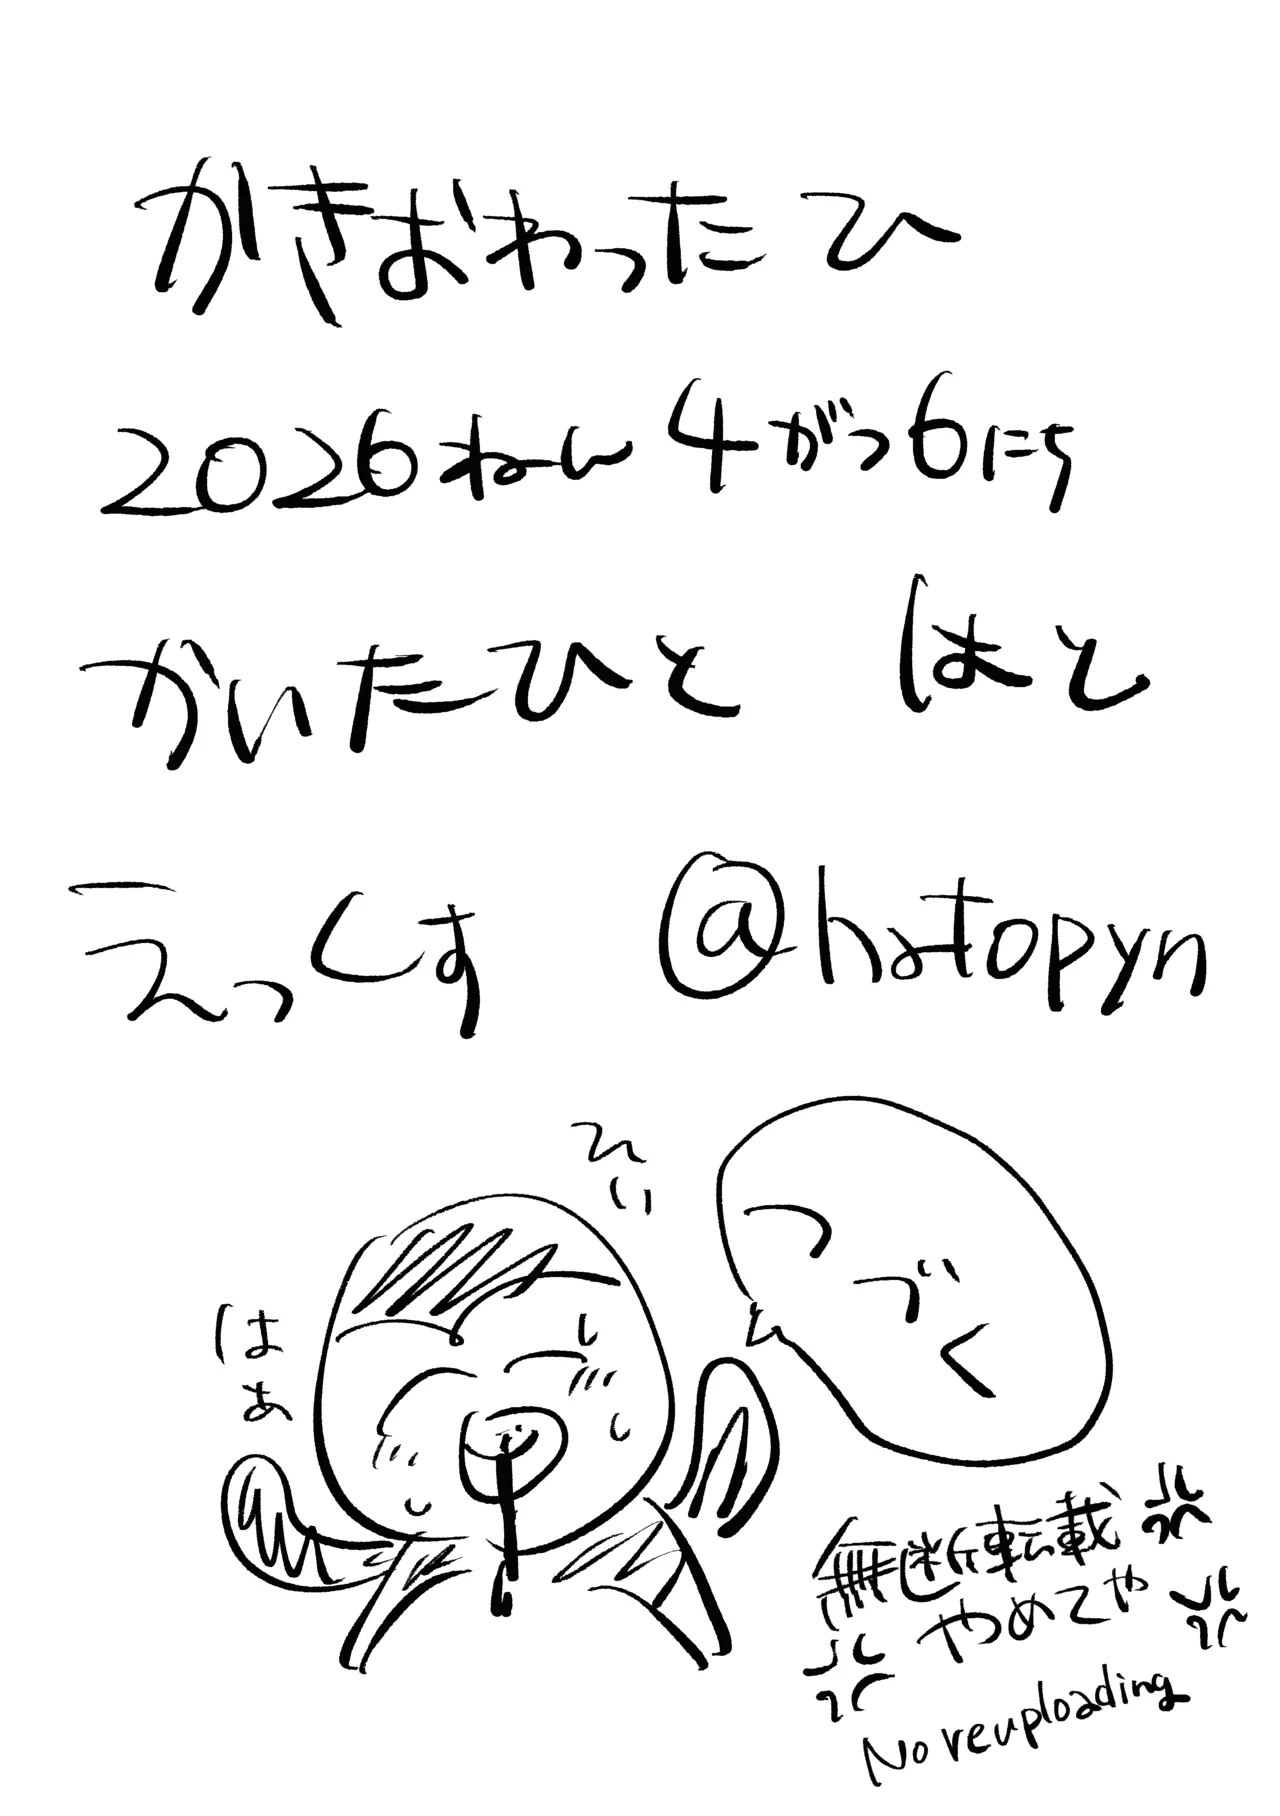 かきおわったひ
2026ねん4がつ6にち
かいたひと はと
えっくす @hatopyn
ひぃ
つづく
はぁ
無断転載
やめてや
No reuploading